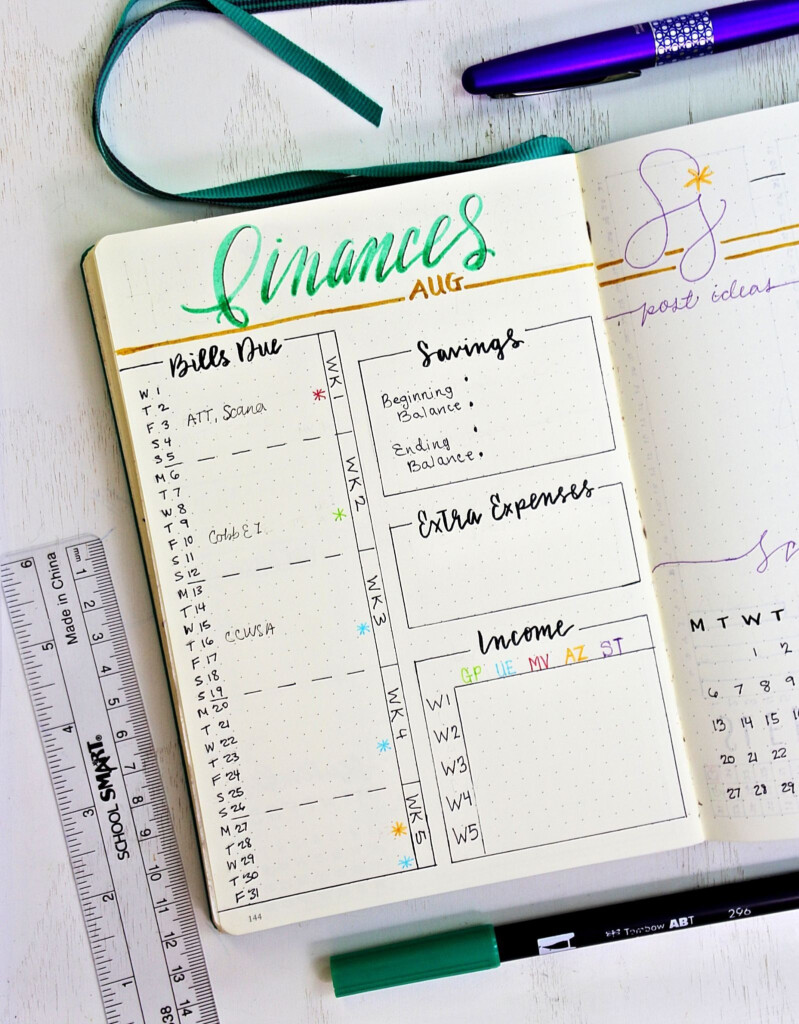 finances
AUG
Bills Due
W 1
T 2
F 3 ATT, Scana
S 4
S 5
M 6
T 7
W 8
T 9
F 10 Cobb EI
S 11
S 12
M 13
T 14
W 15
T 16 CCWSA
F 17
S 18
S 19
M 20
T 21
W 22
T 23
F 24
S 25
S 26
M 27
T 28
W 29
T 30
F 31
WK 1
WK 2
WK 3
WK 4
WK 5
144
Savings
Beginning
Balance
Ending
Balance
Extra Expenses
Income
GP UE MV AZ ST
W1
W2
W3
W4
W5
post ideas
M T W T
1 2
6 7 8 9
13 14 15
20 21 22
27 28 29
6 5 4 3 2 1
Made in China
SCHOOL SMART®
mm 1 2 3 4 5 6 7 8 9 10 11 12 13 14
Tombow ABT 296